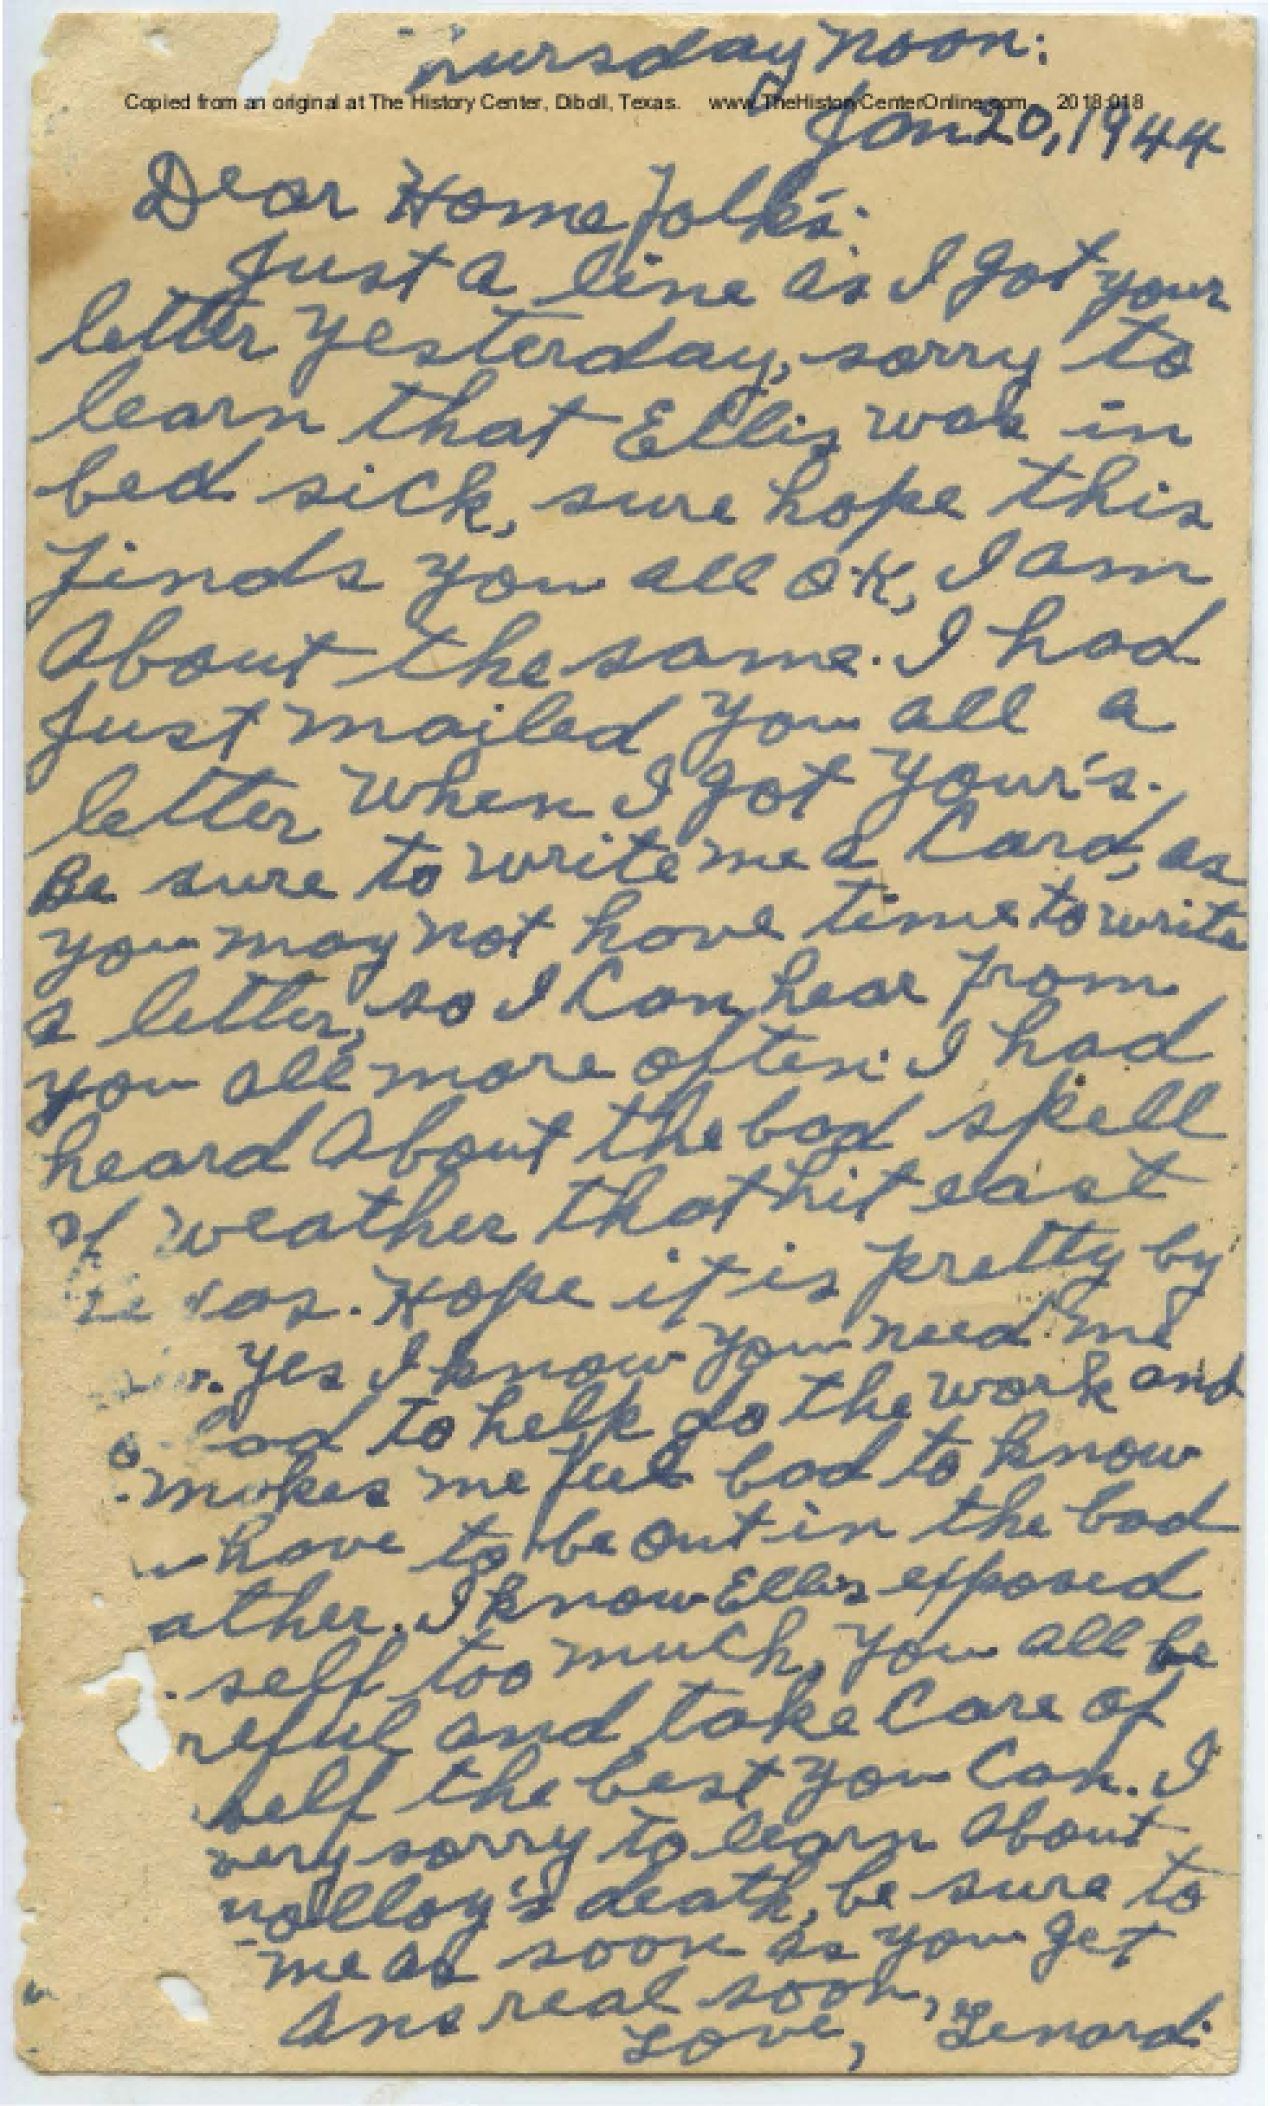 hursday noon:
Copied from an original at The History Center, Diboll, Texas. www.TheHistoryCenterOnline.com 2018:018
Jan 20, 1944
Dear Home folk's:
Just a line as I got your
letter yesterday, sorry to
learn that Ellis was in
bed sick, sure hope this
finds you all O.K, I am
About the same. I had
Just mailed you all a
letter when I got your's.
Be sure to write me a Card, as
you may not have time to write
a letter, so I Can hear from
you all more often. I had
heard About the bad spell
of weather that hit east
as. Hope it is pretty by
Yes I know you need me
bad to help do the work and
makes me feel bad to know
have to be out in the bad
ather. I know Ellis exposed
self too much, you all be
reful and take Care of
self the best you Can. I
very sorry to learn About
death, be sure to
me as soon as you get
Ans real soon,
Love, Lenard.